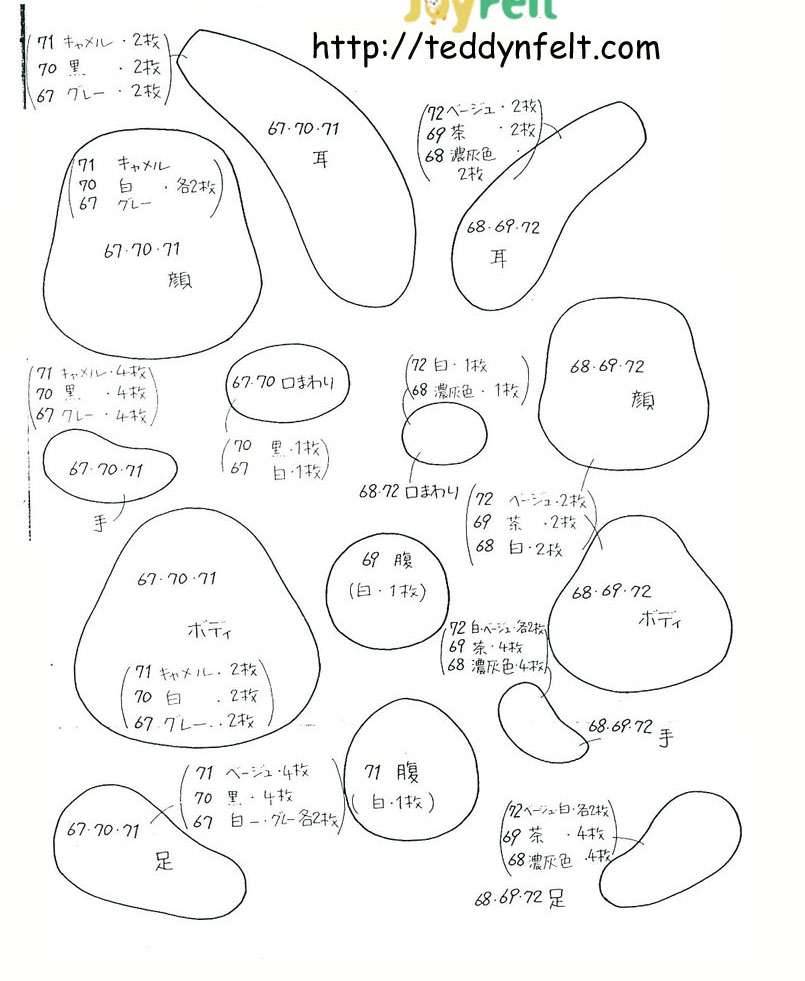 JoyFelt
http://teddynfelt.com
71 キャメル・2枚
70 黒 ・2枚
67 グレー・2枚
67・70・71
耳
72 ベージュ・2枚
69 茶 ・2枚
68 濃灰色・
2枚
68・69・72
耳
71 キャメル
70 白 ・各2枚
67 グレー
67・70・71
顔
68・69・72
顔
71 キャメル・4枚
70 黒 ・4枚
67 グレー・4枚
67・70・71
手
67・70 口まわり
70 黒・1枚
67 白・1枚
72 白・1枚
68 濃灰色・1枚
68・72 口まわり
72 ベージュ・2枚
69 茶 ・2枚
68 白・2枚
67・70・71
ボディ
71 キャメル・2枚
70 白 ・2枚
67 グレー・2枚
69 腹
(白・1枚)
68・69・72
ボディ
72 白・ベージュ・各2枚
69 茶・4枚
68 濃灰色・4枚
68・69・72 手
71 ベージュ・4枚
70 黒・4枚
67 白・グレー各2枚
67・70・71
足
71 腹
(白・1枚)
72 ベージュ・白・各2枚
69 茶 ・4枚
68 濃灰色・4枚
68・69・72 足